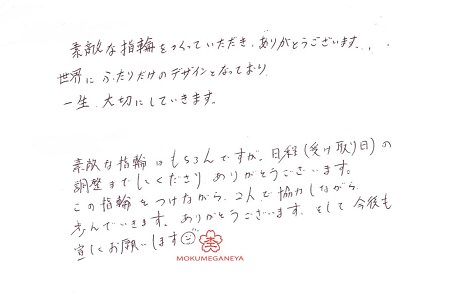 素敵な指輪をつくっていただき、ありがとうございます...
世界にふたりだけのデザインとなっており
一生、大切にしていきます。
素敵な指輪はもちろんですが、日程(受け取り日)の
調整までしてくださり ありがとうございます。
この指輪をつけながら、2人で協力しながら
歩んでいきます。ありがとうございます、そして今後も
宜しくお願いします
MOKUMEGANEYA